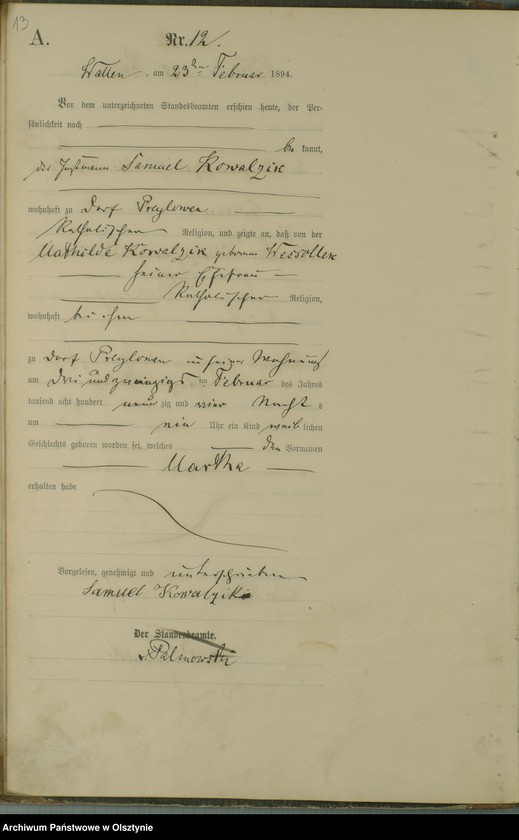 13
A.
Nr. 12.
Wallen. am 23ten Februar 1894.
Vor dem unterzeichneten Standesbeamten erschien heute, der Per-
sönlichkeit nach
be kannt,
der Instmann Samuel Kowalzik
wohnhaft zu Dorf Preylowen
Katholischer Religion, und zeigte an, daß von der
Mathilde Kowalzik geborenen Wessollek
seiner Ehefrau
Katholischer Religion,
wohnhaft bei ihm
zu Dorf Preylowen in seiner Wohnung
am Drei und zwanzigs ten Februar des Jahres
tausend acht hundert neun zig und vier Nacht s
um ein Uhr ein Kind weib lichen
Geschlechts geboren worden sei, welches den Vornamen
Martha
erhalten habe
Vorgelesen, genehmigt und unterschrieben
Samuel Kowalzik
Der Standesbeamte.
v. Palmowski
Archiwum Państwowe w Olsztynie